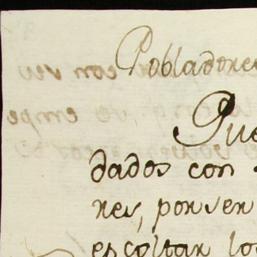 Pobladores
Pue
dados con
res, por ser
escoltar lo